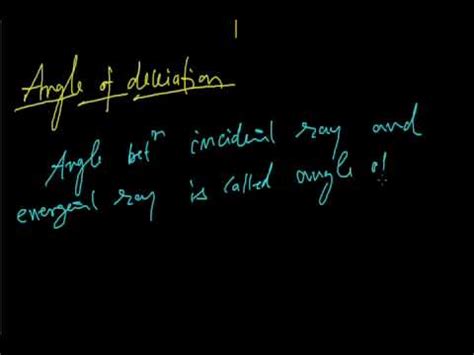 Angle of deviation
Angle betⁿ incident ray and
emergent ray is called angle of